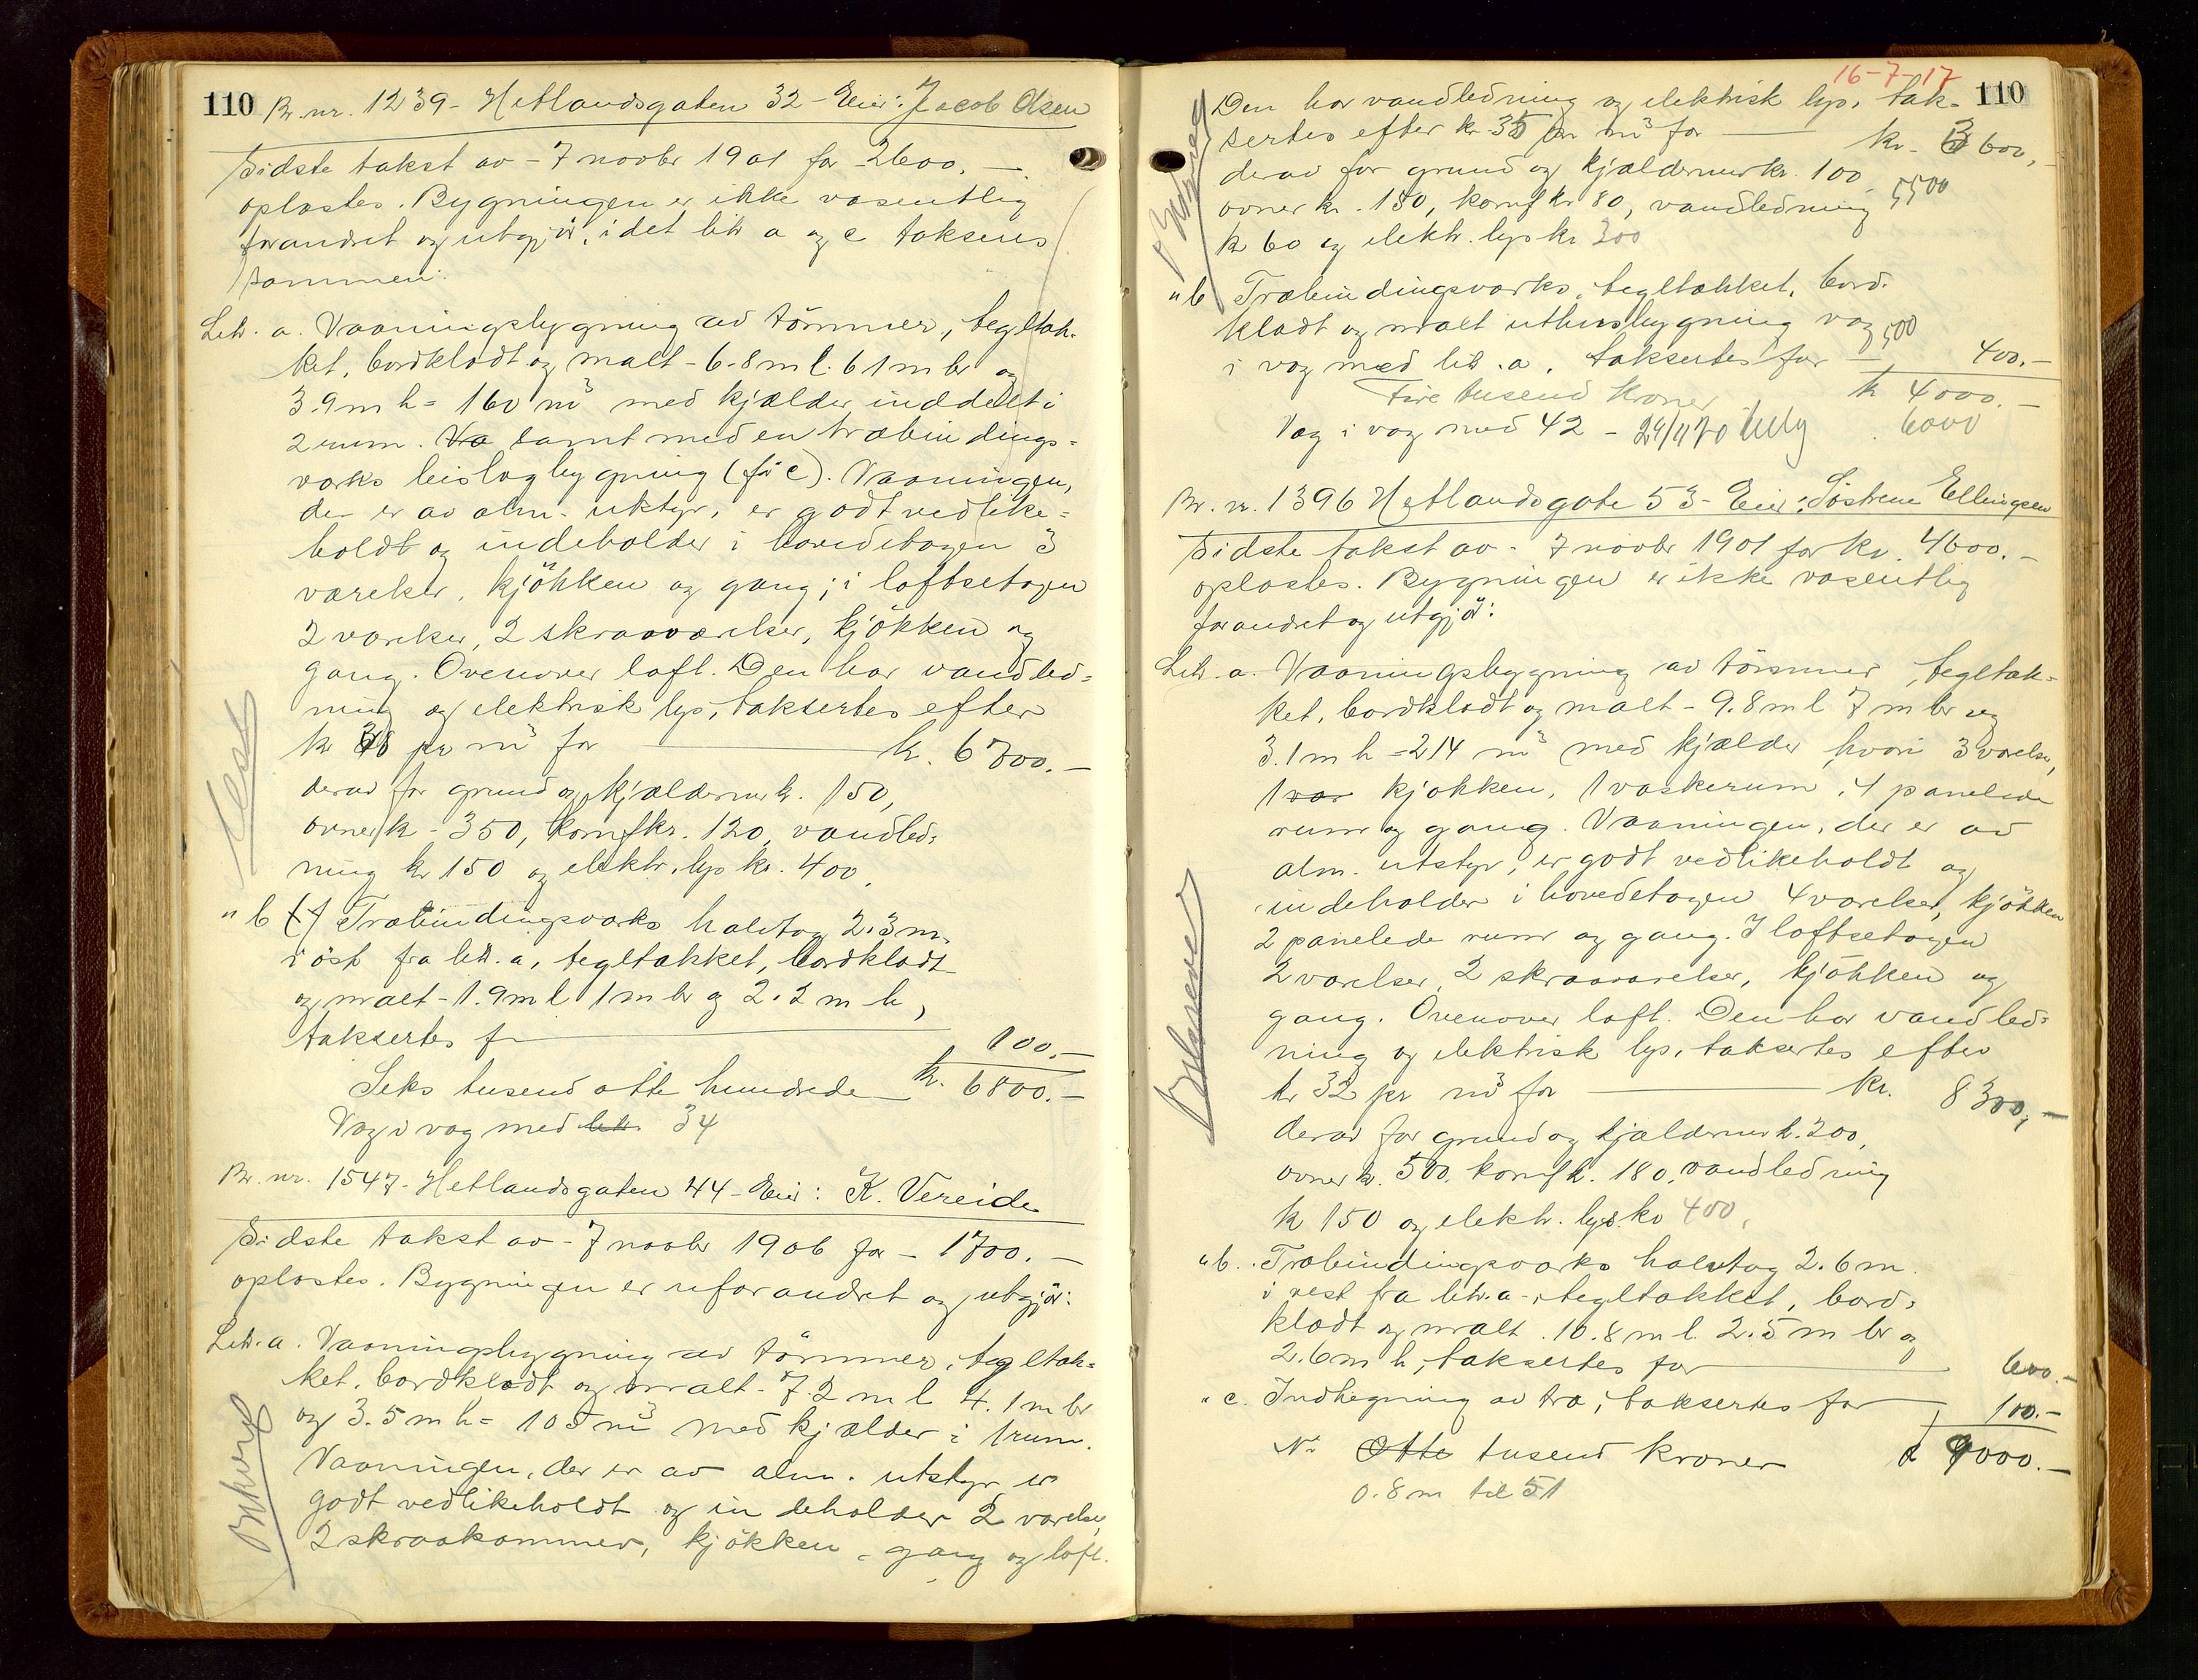 110 Br. nr. 1239 - Hetlandsgaten 32 - Eier: Jacob Olsen
Sidste takst av - 7 novbr 1901 for - 2600.-
oplæstes. Bygningen er ikke væsentlig
forandret og utgjör, idet litr a og c takseres
sammen:
Litr. a. Vaaningsbygning av tömmer, tegltæk-
ket, bordklædt og malt - 6.8 m l. 6 1 m br og
3.9 m h = 160 m³ med kjælder inddelt i
2 rum. Va samt med en træbindings=
værks bislagbygning (för c). Vaaningen,
der er av alm. utstyr, er godt vedlike=
holdt og indeholder i hovedetagen 3
værelser, kjökken og gang; i loftsetagen
2 værelser, 2 skraaværelser, kjökken og
gang. Ovenover loft. Den har vandled=
ning og elektrisk lys, taksertes efter
kr 38 pr m³ for kr. 6700.-
derav for grund og kjældermur kr. 150,
ovner kr - 350, komf kr. 120, vandled=
ning kr 150 og elektr. lys kr. 400.
" b Træbindingsværks halvtag 2.3 m.
i öst fra litr. a, tegltækket, bordklædt
og malt - 1.9 m l 1 m br og 2.2 m h,
taksertes f 100.-
Seks tusend otte hundrede kr. 6800.-
Væg i væg med litr. 34
Br. nr. 1547 - Hetlandsgaten 44 - Eier: K. Vereide
Sidste takst av - 7 novbr 1906 for - 1700.-
oplæstes. Bygningen er uforandret og utgjör:
Litr. a. Vaaningsbygning av tömmer, tegltæk=
ket, bordklædt og malt - 7.2 m l 4.1 m br
og 3.5 m h = 103 m³ med kjælder i 1 rum.
Vaaningen, der er av alm. utstyr, er
godt vedlikeholdt og indeholder 2 værelser,
2 skraakammer, kjökken, gang og loft.
16-7-17
110
Den har vandledning og elektrisk lys, tak-
sertes efter kr - 35 pr m³ for kr - 3600,-
derav for grund og kjældermur kr. 100 5500
ovner kr. 150, komf kr 80, vandledning
kr 60 og elektr. lys kr 300
" b Træbindingsværks, tegltækket, bord-
klædt og malt uthusbygning væg 500
i væg med litr. a, taksertes for 400.-
Fire tusend kroner kr 4000.-
Væg i væg med 42 - 6000
Br. nr. 1396 Hetlandsgate 53 - Eier: Söstrene Ellingsen
Sidste takst av - 7 novbr 1901 for kr. 4600.-
oplæstes. Bygningen er ikke væsentlig
forandret og utgjör:
Litr. a. Vaaningsbygning av tömmer, tegltæk=
ket, bordklædt og malt - 9.8 m l 7 m br og
3.1 m h = 214 m³ med kjælder, hvori 3 værelser,
1 vær kjøkken, 1 vaskerum, 4 panelede
rum og gang. Vaaningen, der er av
alm. utstyr, er godt vedlikeholdt og
indeholder i hovedetagen 4 værelser, kjökken
2 panelede rum og gang. I loftsetagen
2 værelser, 2 skraaværelser, kjökken og
gang. Ovenover loft. Den har vandled=
ning og elektrisk lys, taksertes efter
kr 32 pr m³ for kr. 8300,-
derav for grund og kjældermur kr. 200,
ovner kr. 500, komf kr. 180, vandledning
kr 150 og elektr. lys kr 400,
" b. Træbindingsværks halvtag 2.6 m.
i vest fra litr. a -, tegltækket, bord=
klædt og malt. 10.8 m l. 2.5 m br og
2.6 m h, taksertes for 600.-
" c. Indhegning av træ, taksertes for 100.-
Ni Otte tusend kroner 9000.-
0.8 m til 51